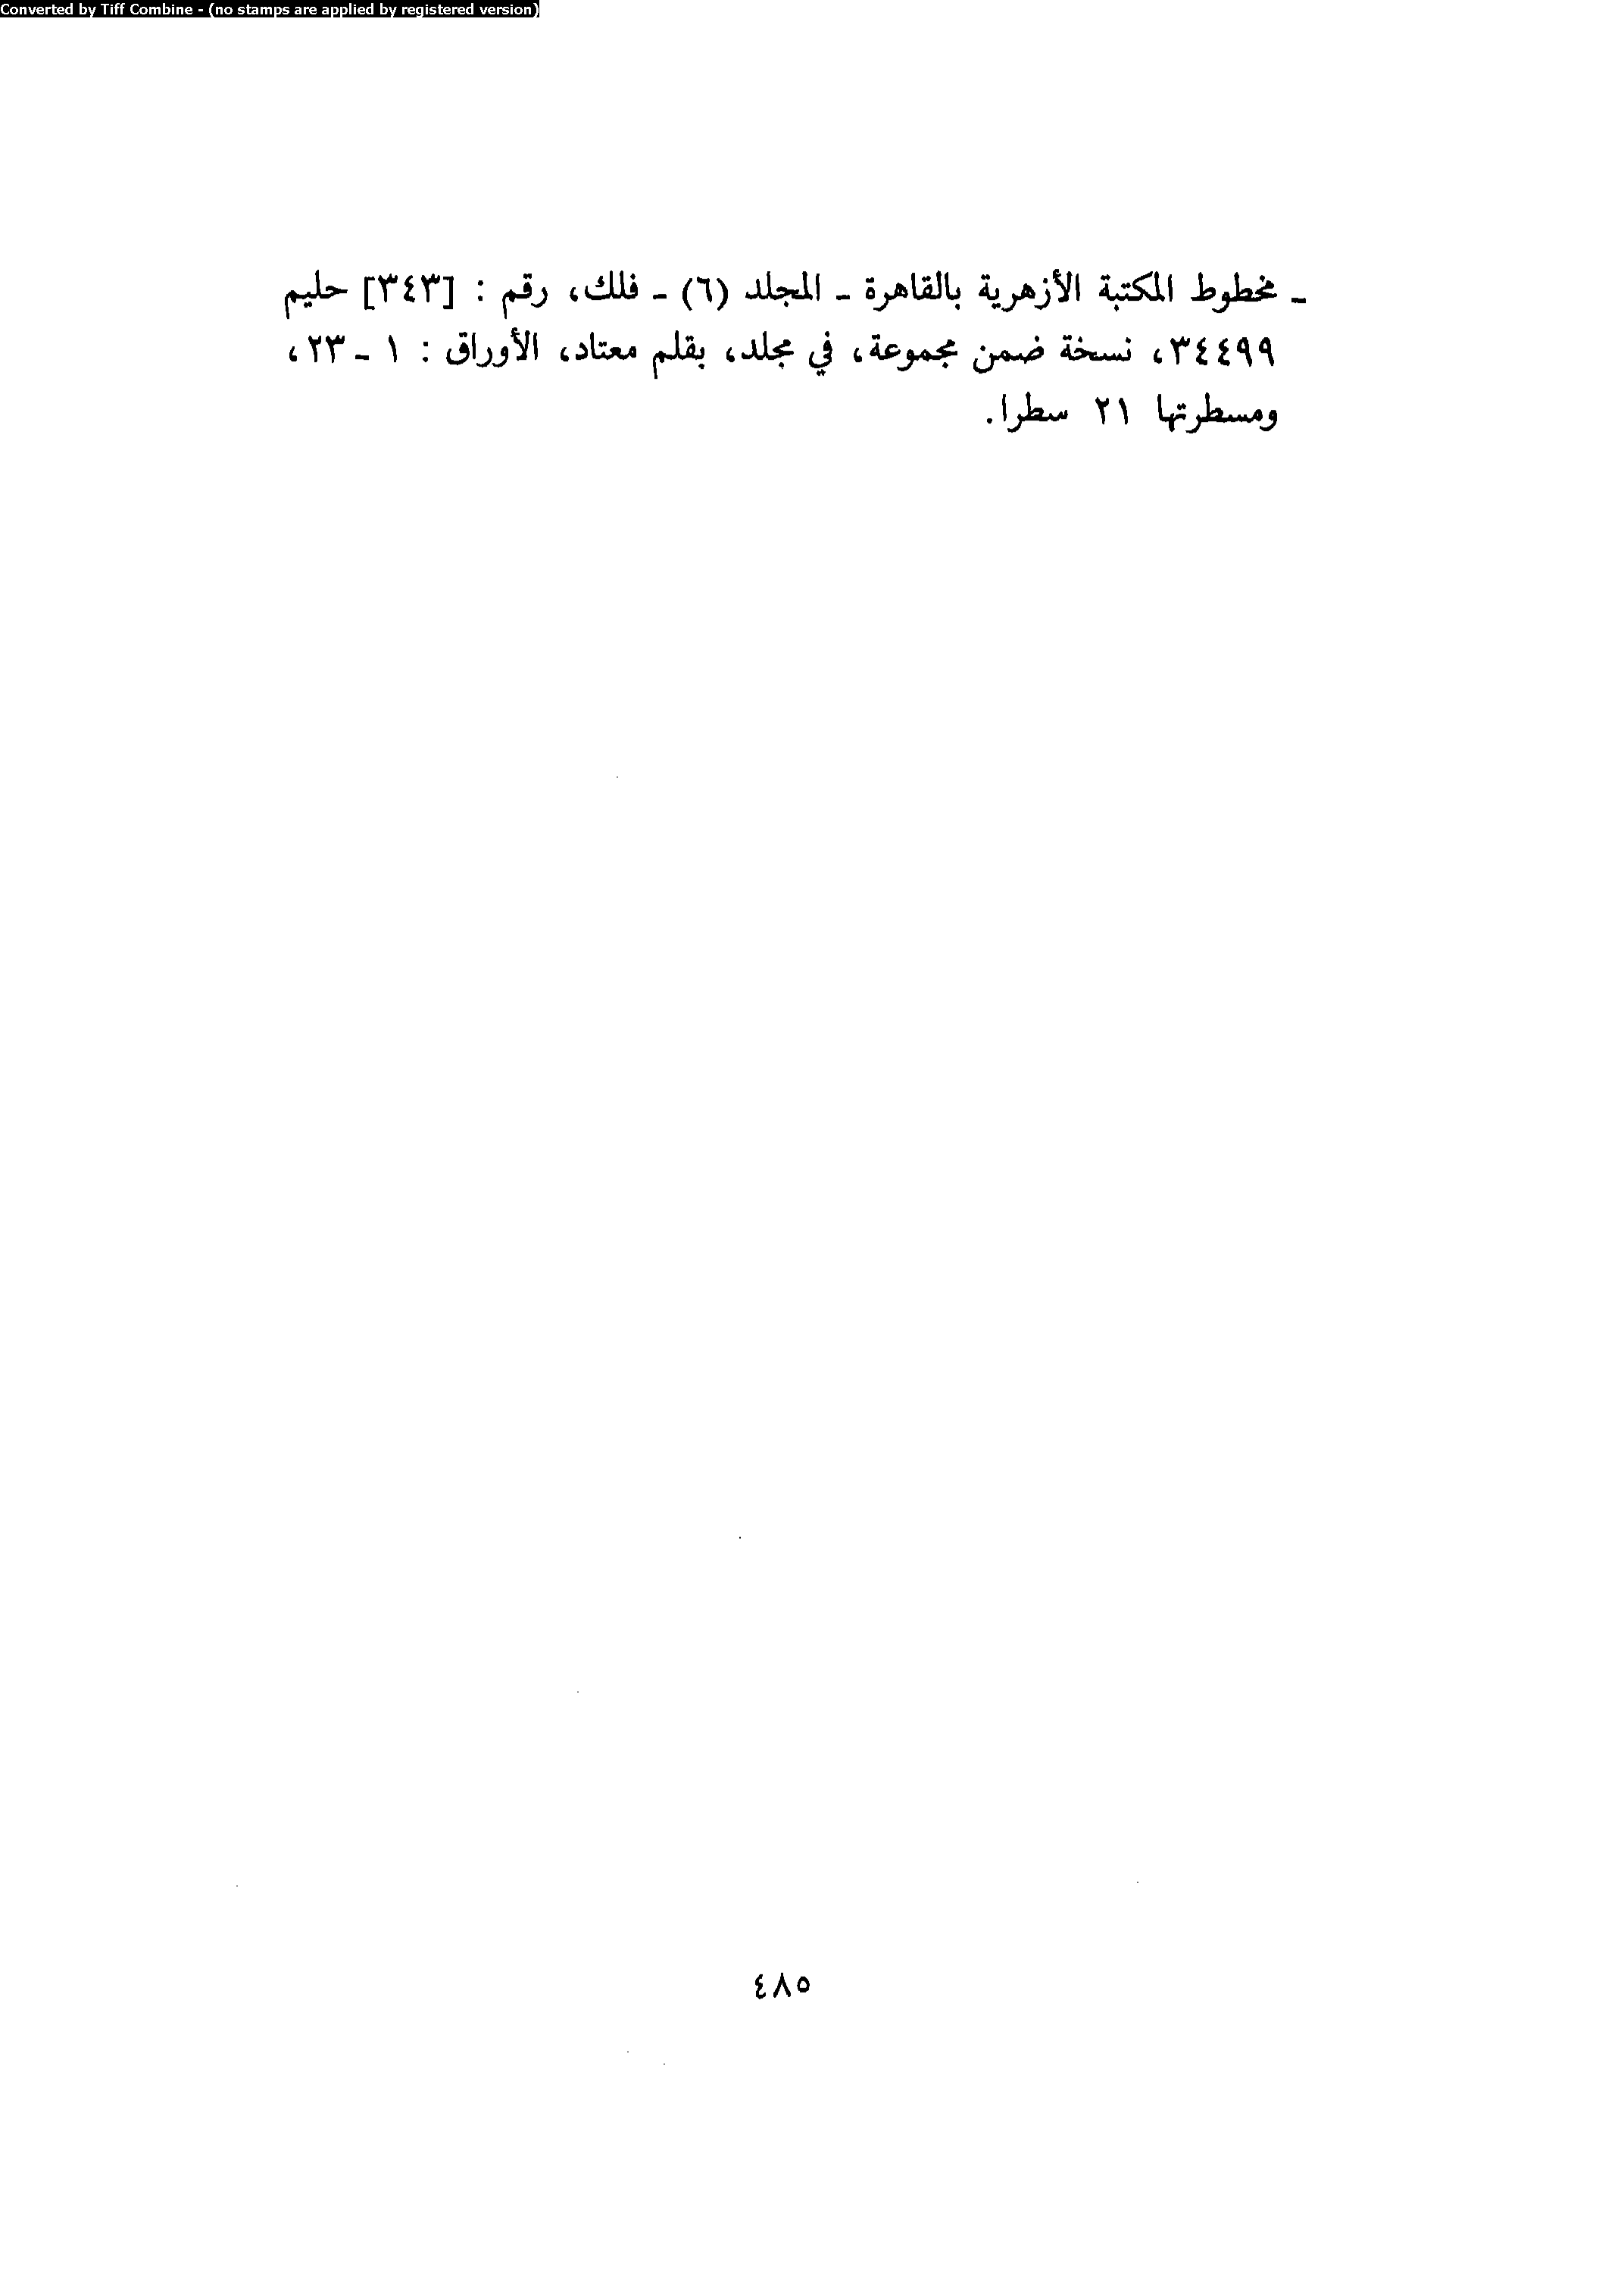 Converted by Tiff Combine - (no stamps are applied by registered version)
ـ مخطوط المكتبة الأزهرية بالقاهرة ـ المجلد (٦) ـ فلك، رقم : [٣٤٣] حليم
٣٤٤٩٩، نسخة ضمن مجموعة، في مجلد، بقلم معتاد، الأوراق : ١ ـ ٢٣،
ومسطرتها ٢١ سطرا.
٤٨٥